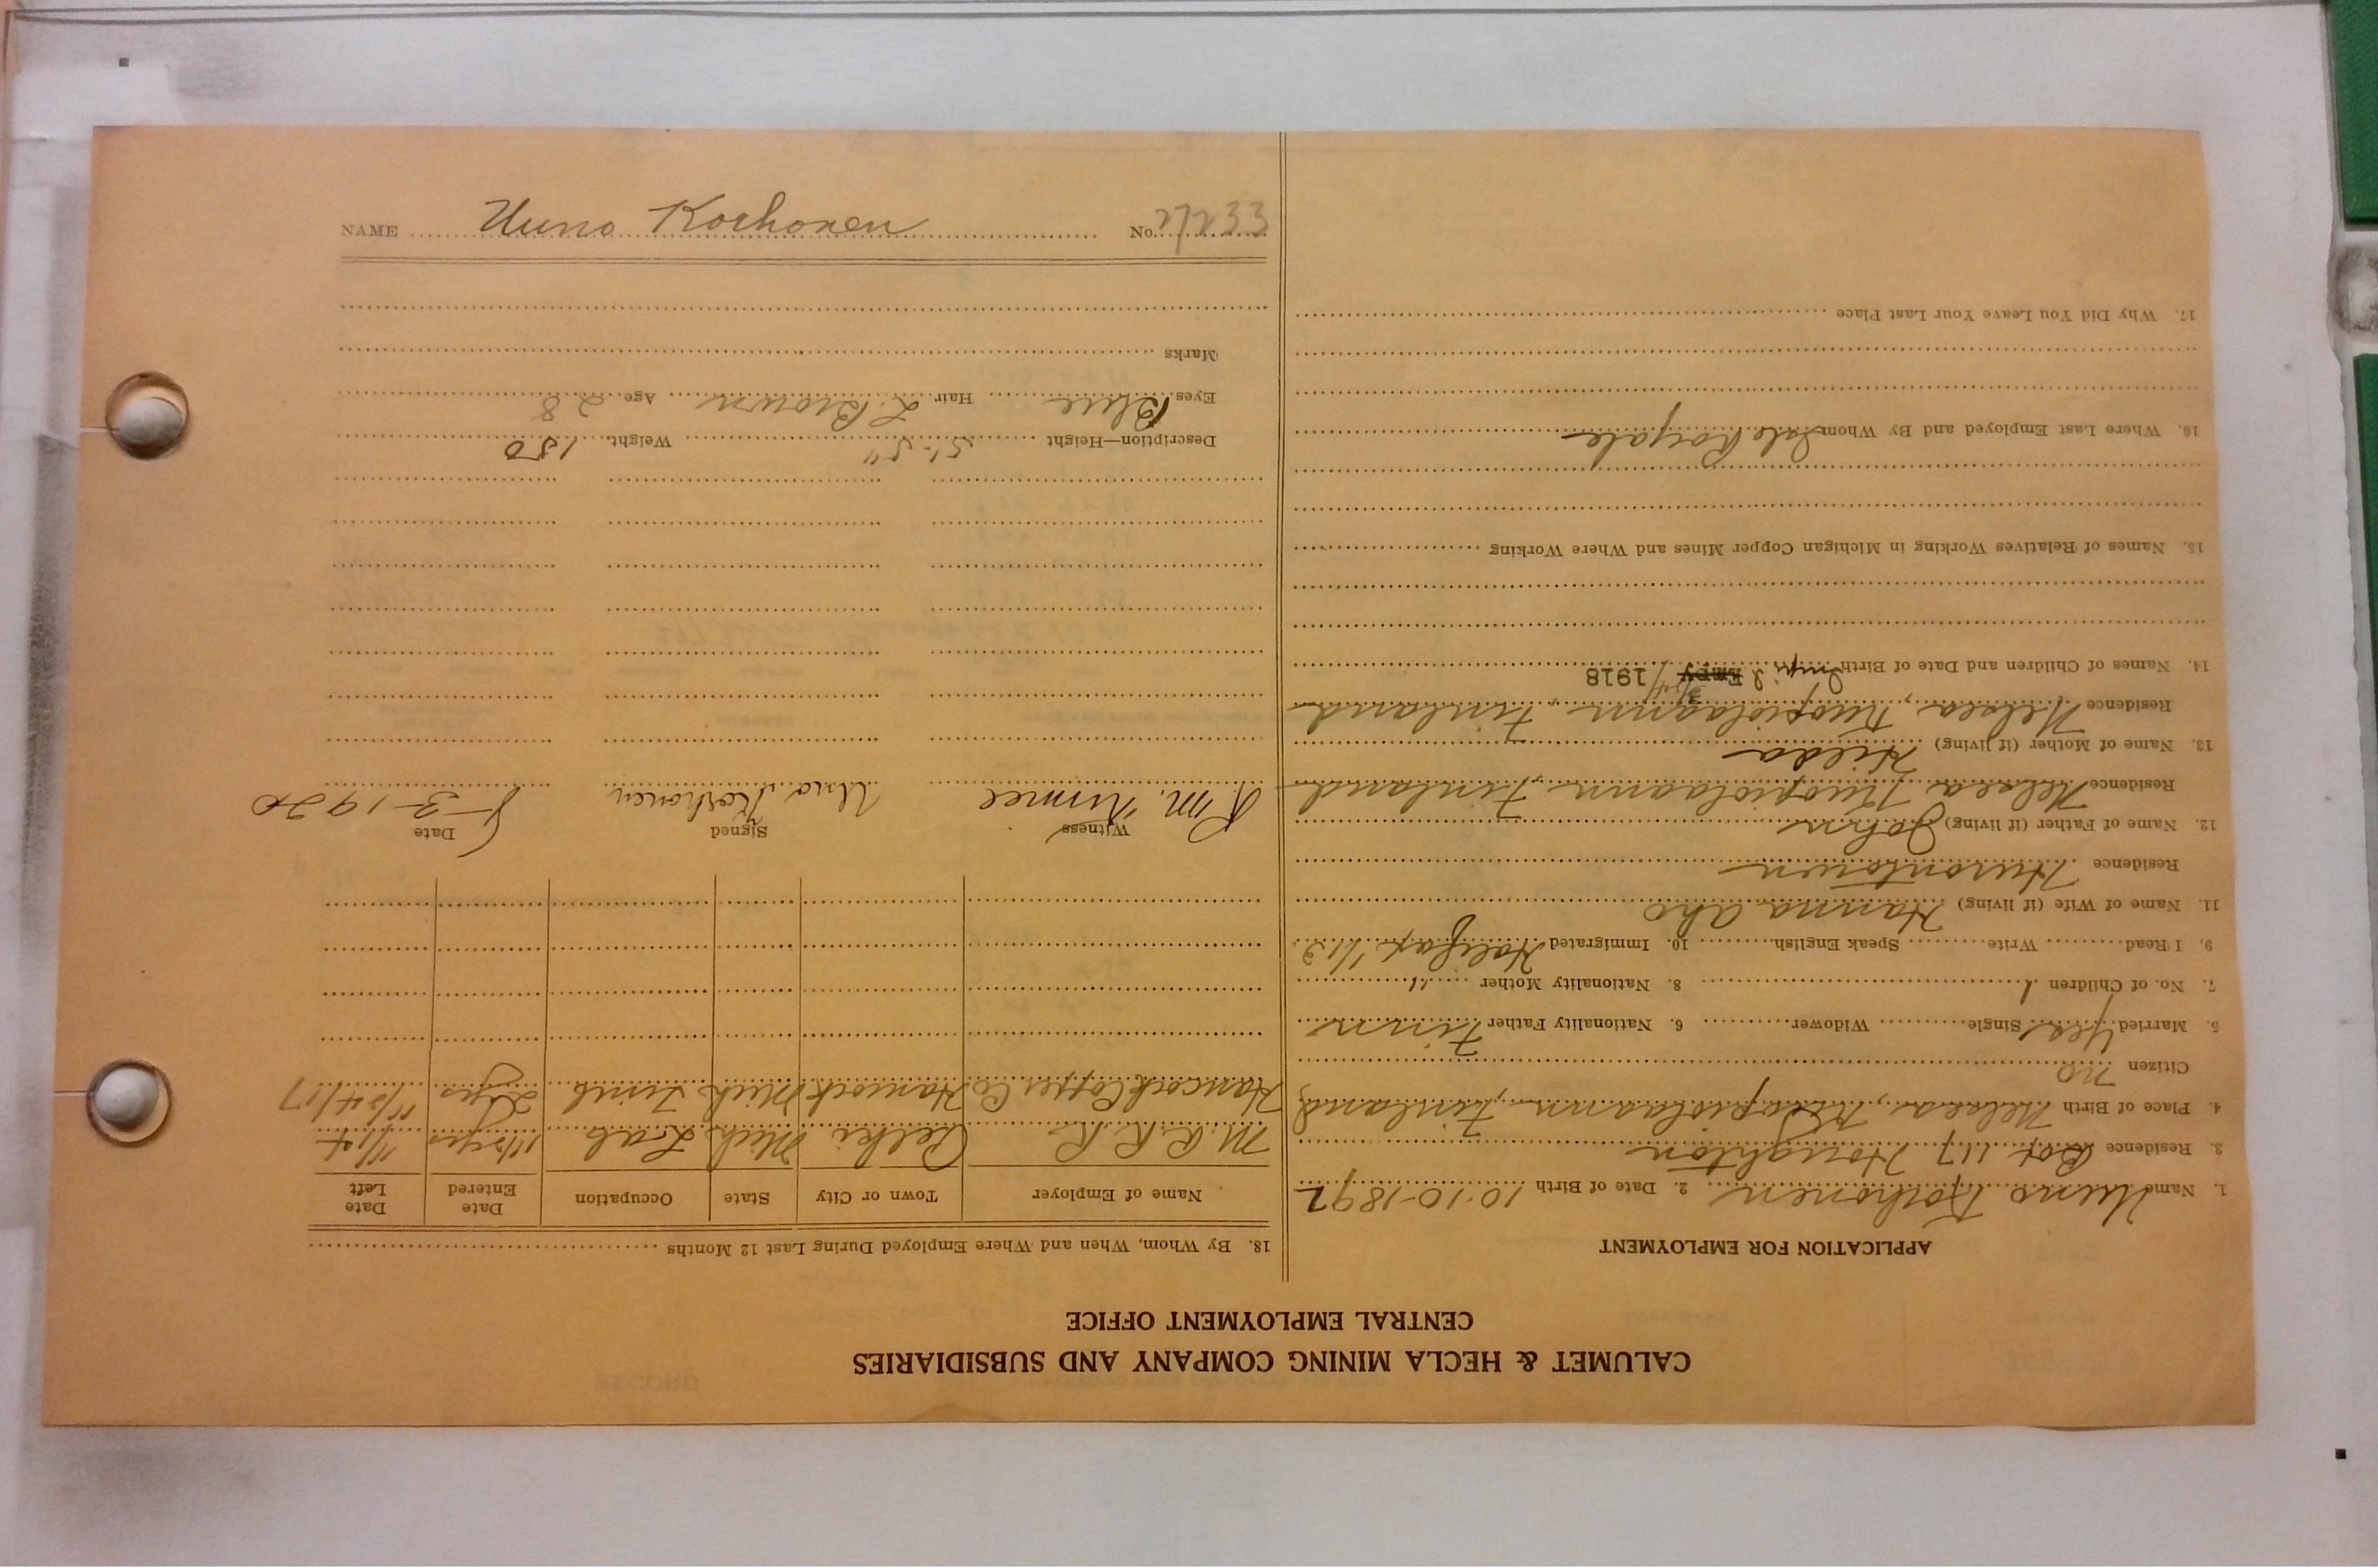 CALUMET & HECLA MINING COMPANY AND SUBSIDIARIES
CENTRAL EMPLOYMENT OFFICE
APPLICATION FOR EMPLOYMENT
1. Name Uuno Korhonen 2. Date of Birth 10-10-1892
3. Residence Box 117 Houghton
4. Place of Birth Kuopiolaann, Finland
Citizen no
5. Married Yes Single Widower 6. Nationality Father Finn
7. No. of Children 1 8. Nationality Mother "
9. I Read Write Speak English 10. Immigrated Halifax
11. Name of Wife (if living) Hanna Aho
Residence Hurontown
12. Name of Father (if living) John
Residence Kuopiolaann, Finland
13. Name of Mother (if living) Hilda
Residence Kuopiolaann, Finland
14. Names of Children and Date of Birth 1918
15. Names of Relatives Working in Michigan Copper Mines and Where Working
16. Where Last Employed and By Whom Isle Royale
17. Why Did You Leave Your Last Place
18. By Whom, When and Where Employed During Last 12 Months
Name of Employer Town or City State Occupation Date Entered Date Left
M. R. R. Pelki Mich Lab
Hancock Copper Co Hancock Mich 2 yrs 11/24/17
Witness Signed Date
Uno Korhonen 8-3-1920
Description—Height 5'-5" Weight 150
Eyes Blue Hair L. Brown Age 28
Marks
NAME Uuno Korhonen No. 27233
RECORD